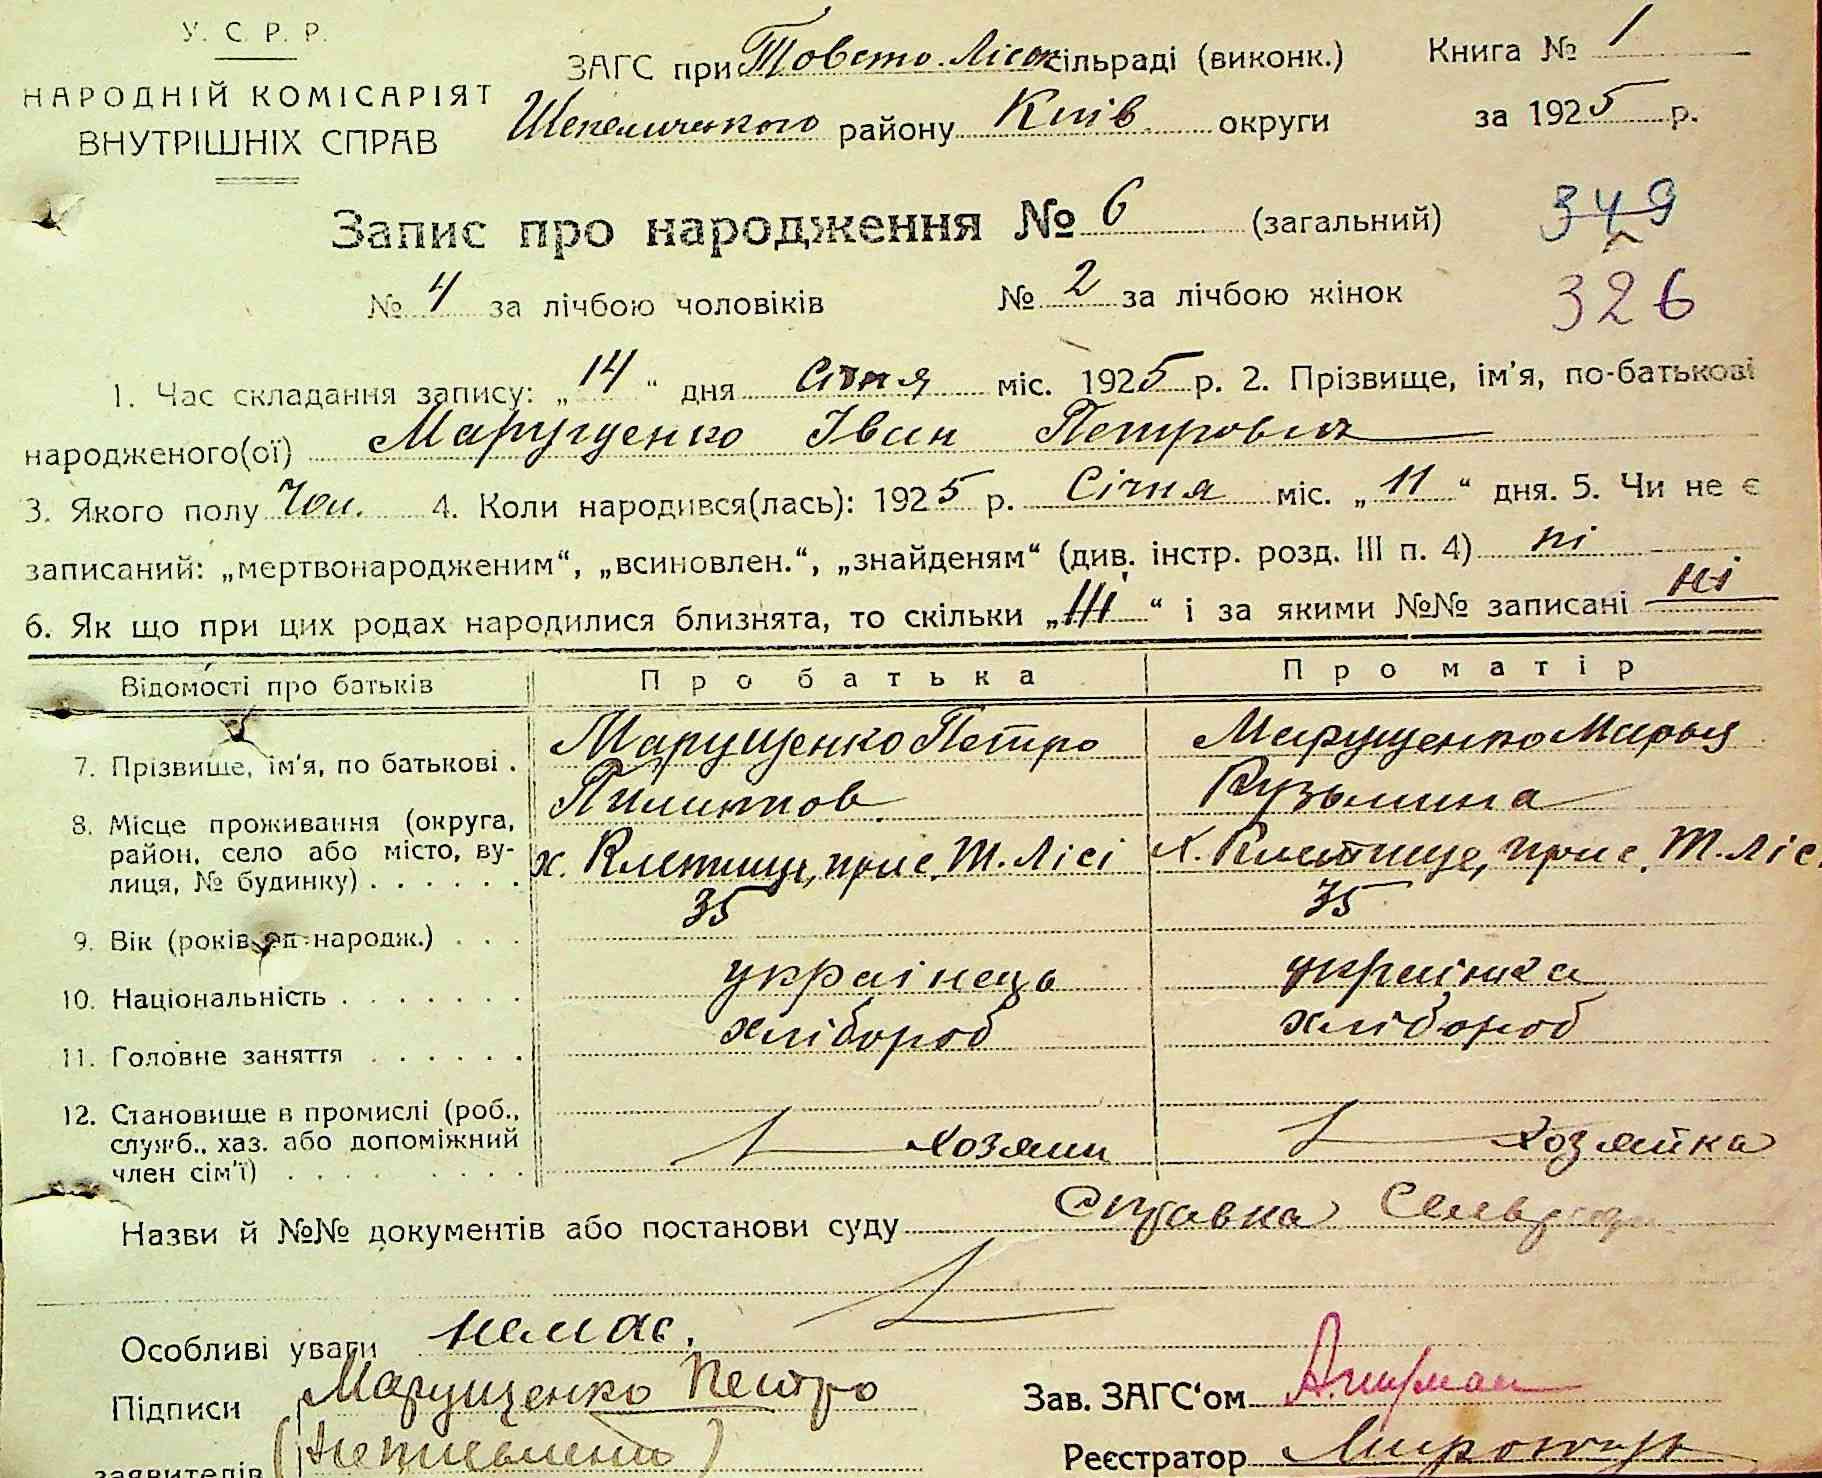 У. С. Р. Р.
НАРОДНІЙ КОМІСАРІЯТ
ВНУТРІШНІХ СПРАВ
ЗАГС при Товсто. Лісок сільраді (виконк.) Книга № 1
Шепелицького району Київ. округи за 1925 р.
Запис про народження № 6 (загальний) 349
№ 4 за лічбою чоловіків № 2 за лічбою жінок 326
1. Час складання запису: „14“ дня Січня міс. 1925 р. 2. Прізвище, ім'я, по-батькові
народженого(ої) Марущенко Іван Петрович
3. Якого полу Чол. 4. Коли народився(лась): 1925 р. Січня міс. „11“ дня. 5. Чи не є
записаний: „мертвонародженим“, „всиновлен.“, „знайденям“ (див. інстр. розд. III п. 4) ні
6. Як що при цих родах народилися близнята, то скільки „ “ і за якими №№ записані ні
Відомості про батьків Про батька Про матір
7. Прізвище, ім'я, по батькові . Марущенко Петро Марущенко Марья
Пилипов Кузьмина
8. Місце проживання (округа,
район, село або місто, ву-
лиця, № будинку) . . . . . . х. Клетище, при с. Т. Лісі х. Клетище, при с. Т. Ліс
9. Вік (років від народж.) . . . 35 35
10. Національність . . . . . . . українець українка
11. Головне заняття . . . . . . хлібороб хлібороб
12. Становище в промислі (роб.,
служб., хаз. або допоміжний
член сім'ї) . . . . . . . . . хозяин хозяйка
Назви й №№ документів або постанови суду Справка Сельради
Особливі уваги немає.
Підписи Марущенко Петро Зав. ЗАГС'ом
заявителів (Неписьмений) Реєстратор